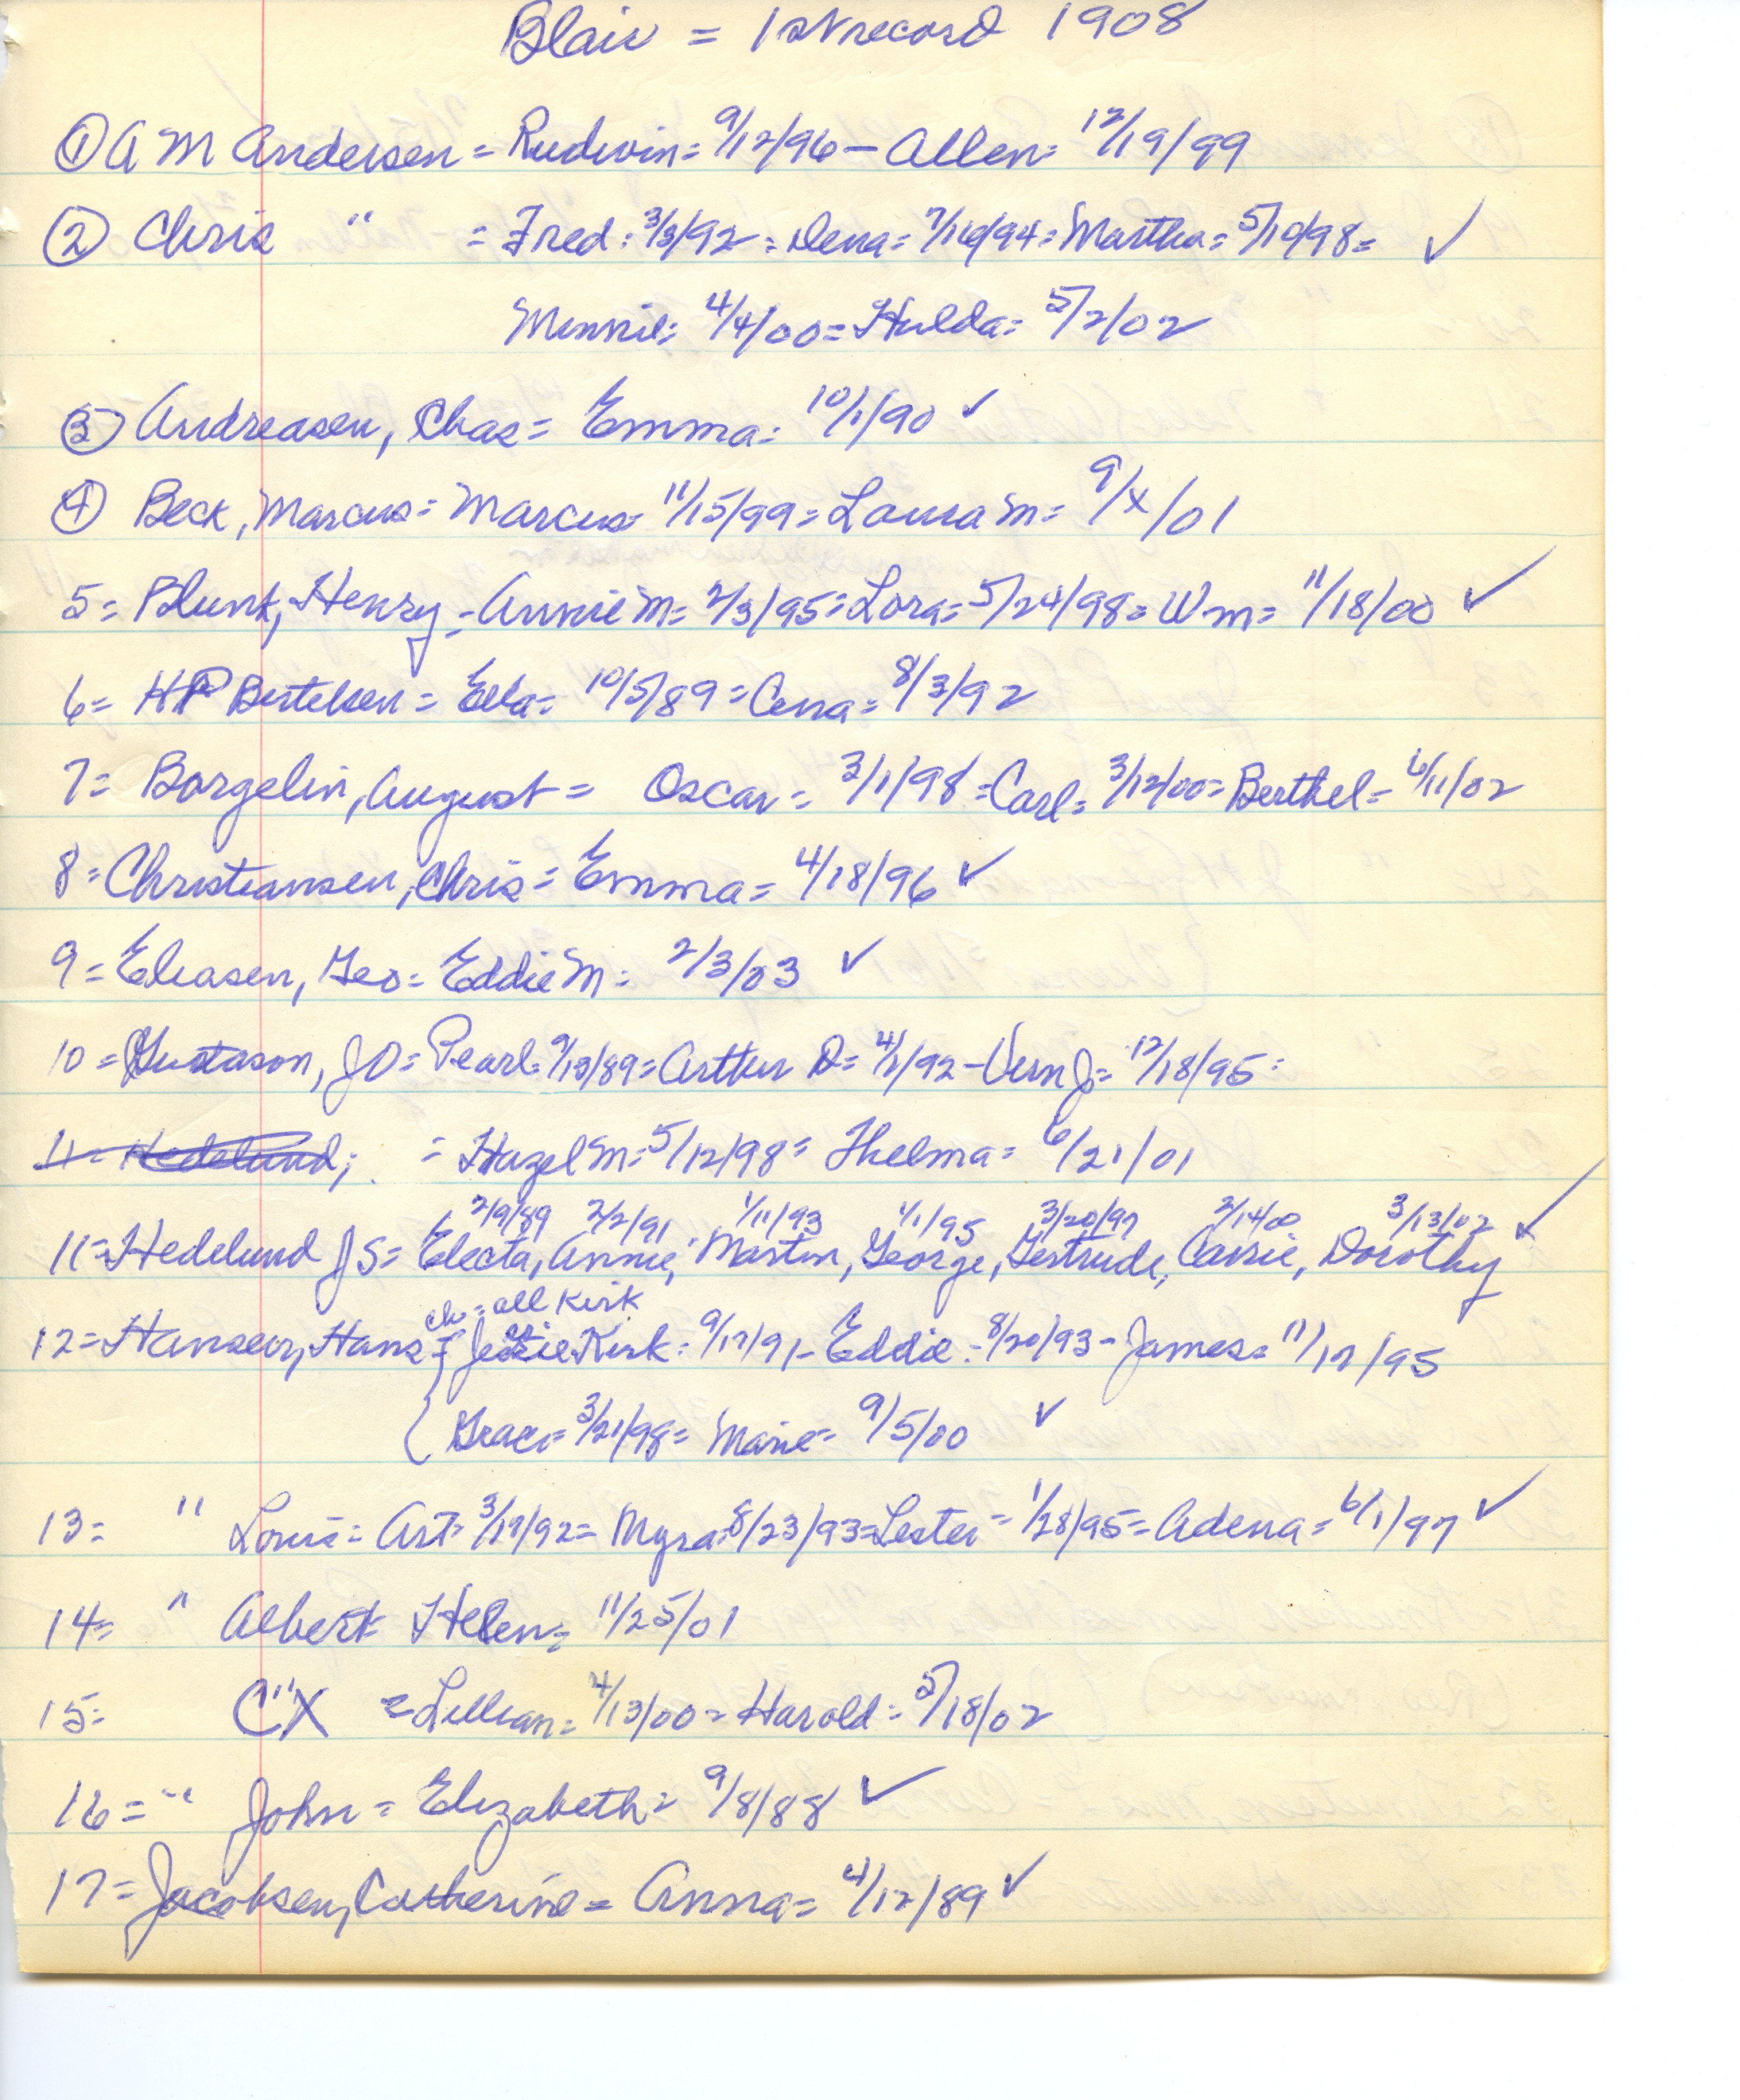 Blair = 1st record 1908
① A M Andersen = Rudwin = 9/12/96 - Allen = 12/19/99
② Chris " = Fred : 3/3/92 = Dena = 7/16/94 = Martha = 5/10/98 = ✓
Minnie = 4/4/00 = Hulda = 5/2/02
③ Andreasen, Chas = Emma = 10/1/90 ✓
④ Beck, Marcus = Marcus = 11/15/99 = Laura M = 9/x/01
5 = Blunk, Henry = Annie M = 2/3/95 = Lora = 5/24/98 = Wm = 11/18/00 ✓
6 = HP Bertelsen = Ella = 10/5/89 = Cena = 8/3/92
7 = Borgelin, August = Oscar = 3/1/98 = Carl = 3/12/00 = Berthel = 6/11/02
8 = Christiansen, Chris = Emma = 4/18/96 ✓
9 = Eliasen, Geo = Eddie M = 2/3/03 ✓
10 = Gustason, JO = Pearl = 9/13/89 = Arthur D = 4/1/92 - Vern J = 12/18/95 =
11 = Hedelund; = Hazel M = 5/12/98 = Thelma = 6/21/01
2/9/89 2/2/91 1/11/93 1/1/95 3/20/97 2/14/00 3/13/02 ✓
11 = Hedelund JS = Electa, Annie, Martin, George, Gertrude, Carrie, Dorothy
ch = all Kirk
12 = Hansen, Hans = { Kirk = 9/17/91 - Eddie = 8/20/93 - James = 11/17/95
{ Grace = 3/21/98 = Marie = 9/5/00 ✓
13 = " Louis = Art = 3/17/92 = Myra = 8/23/93 = Lester = 1/28/95 = Adena = 6/1/97 ✓
14 = " Albert Helen = 11/25/01
15 = C " X = Lillian = 4/13/00 = Harold = 5/18/02
16 = " John = Elizabeth = 9/8/88 ✓
17 = Jacobsen, Catherine = Anna = 4/12/89 ✓